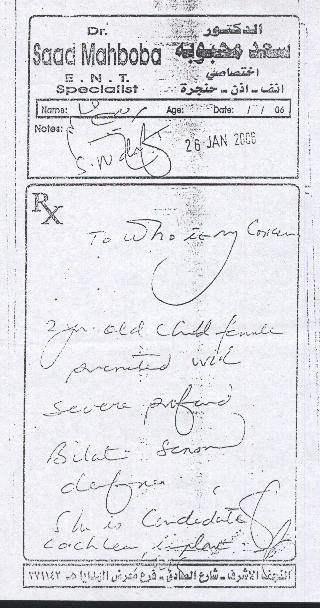 Dr.
Saad Mahboba
E. N. T.
Specialist
الدكتور
سعد محبوبه
اختصاصي
انف - اذن - حنجرة
Name:
Age:
Date: / / 06
Notes:
26 JAN 2006
Rx
To Who it may Concern
2 yr. old child female
presented with
severe profound
Bilat. Senson
deafness.
She is Candidate
Cochlear implant
النجف الاشرف - شارع الصادق - فرع معرض الهدايا هـ ٣٧١١٤٢